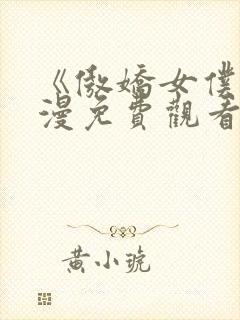 《傲嬌女僕
漫免費觀看
黃小琥